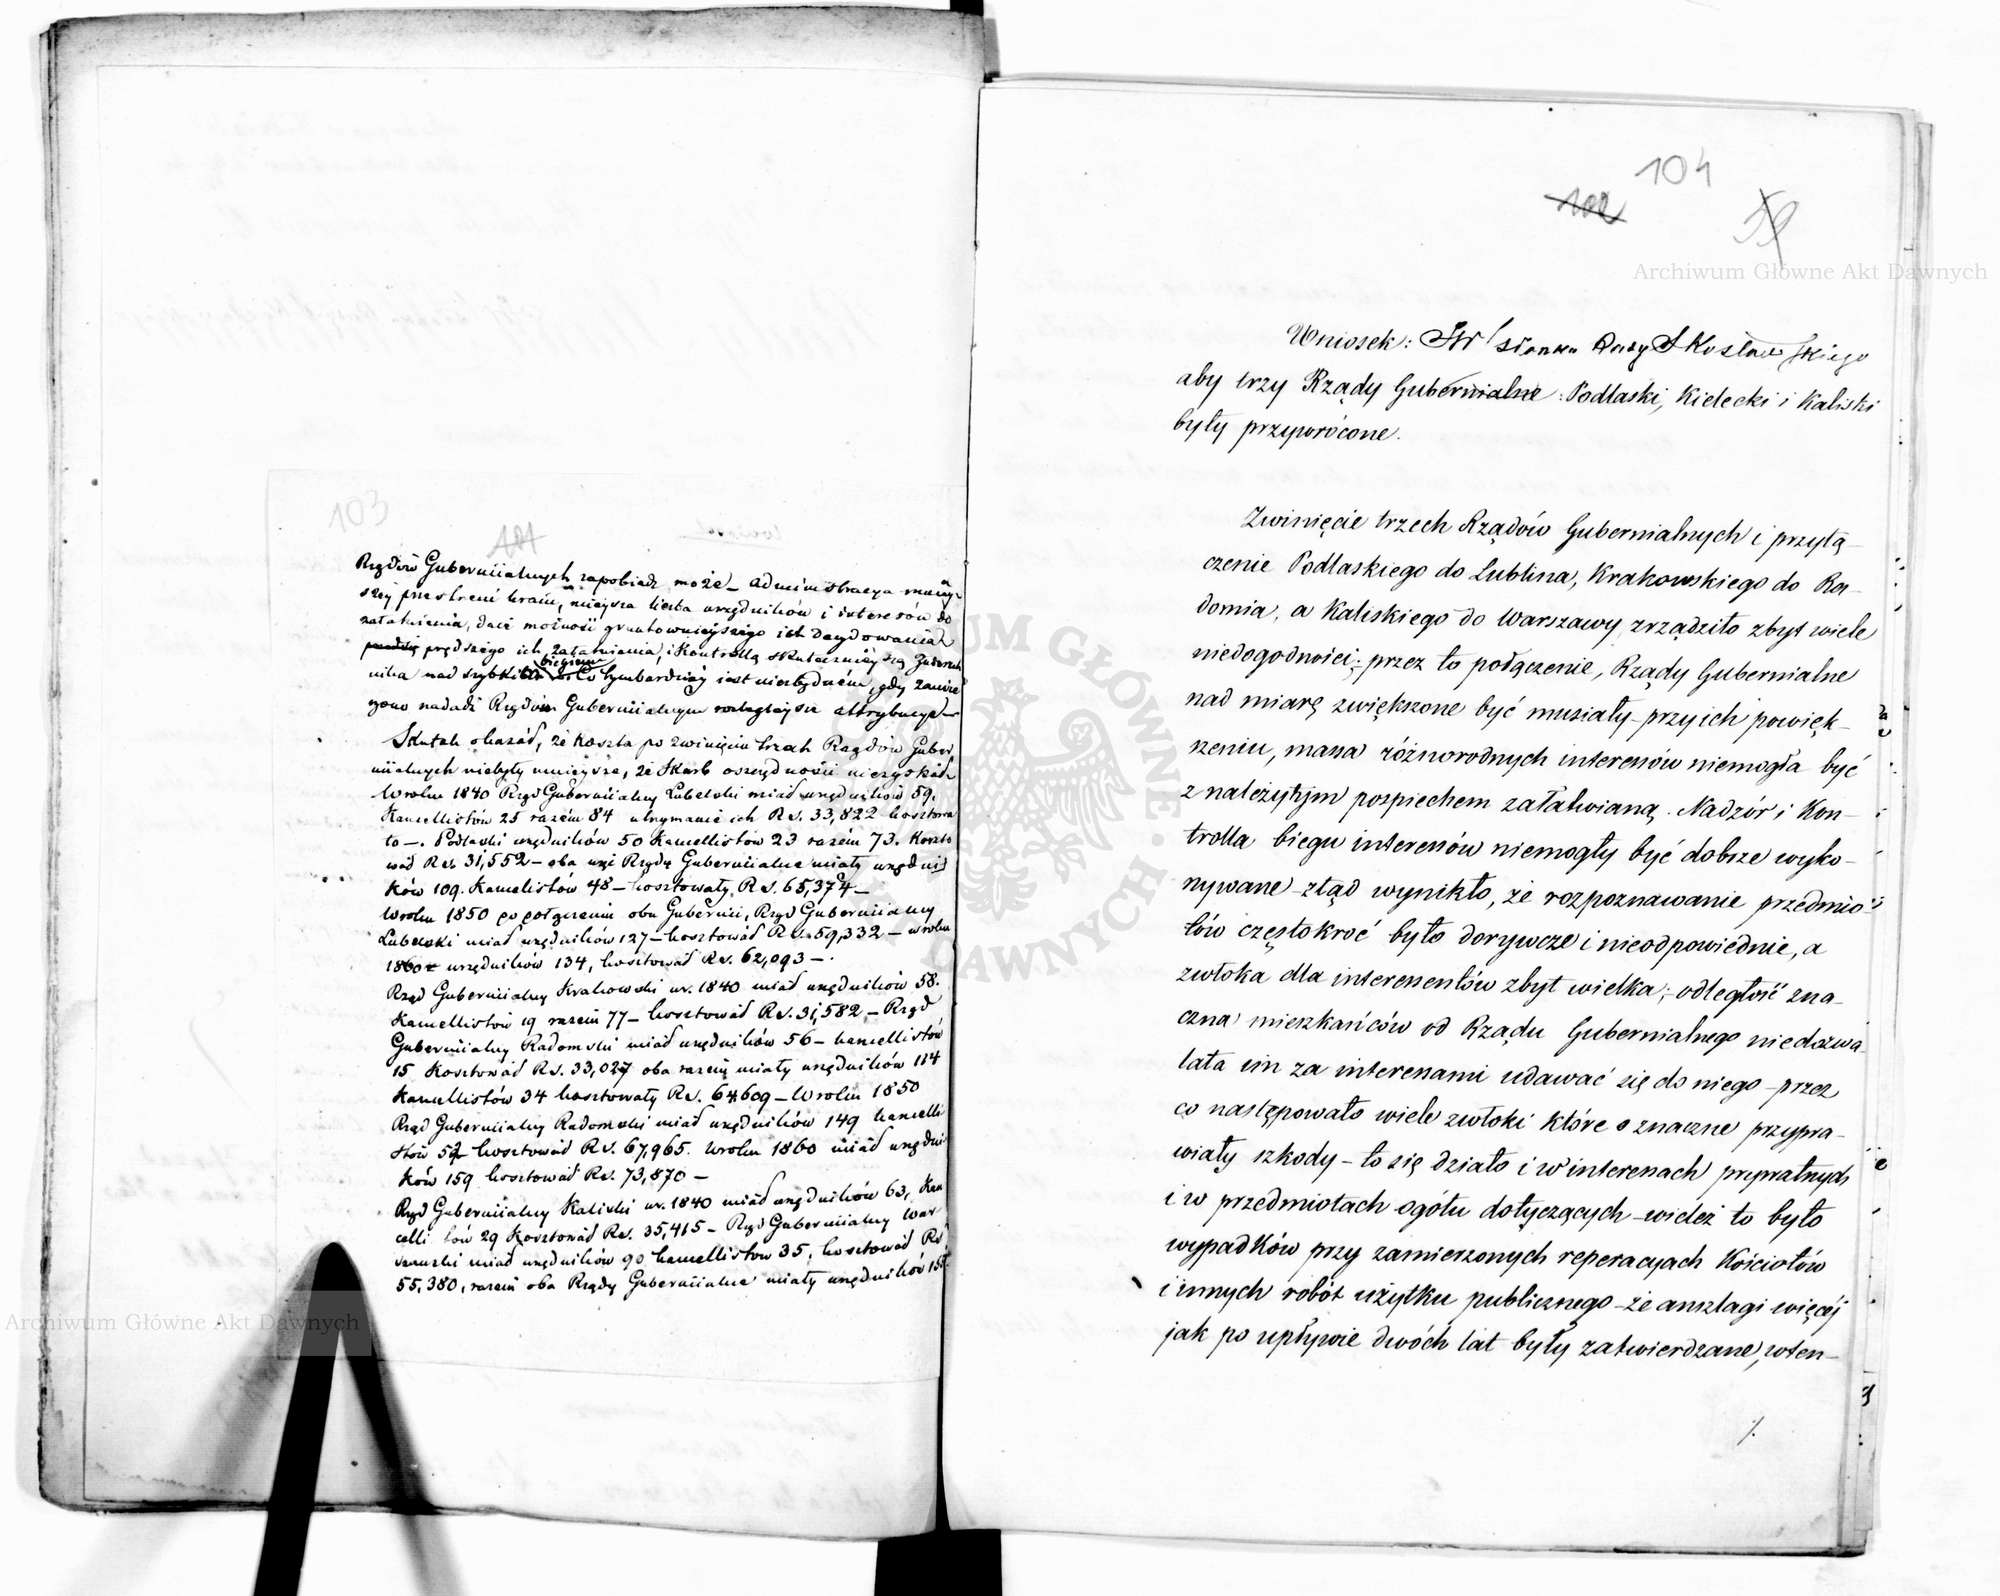 103
101
Rządów Guberniialnych zapobiedz może – administracya mniéy
széy przestrzeni kraiu, mnieysza liczba urzędników i interesów do
załatwienia, daie możność gruntownieyszego ich decydowania
prędszego ich załatwienia, i kontrollą skutecznieyszą
nika nad szybkim biegiem Co tymbardziéy iest niezbędném, gdy zamie
rzono nadadź Rządóm Guberniialnym rozlegleysze attrybucye –
Skutek okazał, że koszta po zwinięciu trzech Rządów Guber
niialnych niebyły mnieysze, że Skarb oszczędności niezyskał
W roku 1840 Rząd Guberniialny Lubelski miał urzędników 59.
Kancellistów 25 razem 84 utrzymanie ich Rs. 33,822 kosztowa
ło –. Podlaski urzędników 50 Kancellistów 23 razem 73. Koszto
wał Rs. 31,552 – oba więc Rządy Guberniialne miały urzędni
ków 109. Kancelistów 48 – kosztowały Rs. 65,374 –
W roku 1850 po połączeniu obu Gubernii, Rząd Guberniialny
Lubelski miał urzędników 127 – kosztował Rs. 59,332 – w roku
1860 urzędników 134, kosztował Rs. 62,093 –.
Rząd Guberniialny Krakowski w r. 1840 miał urzędników 58.
Kancellistów 19 razem 77 – kosztował Rs. 31,582 – Rząd
Guberniialny Radomski miał urzędników 56 – kancellistów
15 Kosztował Rs. 33,027 oba razem miały urzędników 114
Kancellistów 34 kosztowały Rs. 64,609 – W roku 1850
Rząd Guberniialny Radomski miał urzędników 149 kancelli
stów 52 kosztował Rs. 67,965. W roku 1860 miał urzędni
ków 159 kosztował Rs. 73,870 –
Rząd Guberniialny Kaliski w r. 1840 miał urzędników 63, Kan
celli stów 29 Kosztował Rs. 35,415 – Rząd Guberniialny War
szawski miał urzędników 90 kancellistów 35, kosztował Rs
55,380, razem oba Rządy Guberniialne miały urzędników 153
104
102
59
Wniosek: JW członka Rady Stu Kosławskiego
aby trzy Rządy Gubernialne: Podlaski, Kielecki i Kaliski
były przywrócone.
Zwinięcie trzech Rządów Gubernialnych i przyłą–
czenie Podlaskiego do Lublina, Krakowskiego do Ra–
domia, a Kaliskiego do Warszawy, zrządziło zbyt wiele
niedogodności; przez to połączenie, Rządy Gubernialne
nad miarę zwiększone być musiały – przy ich powięk–
szeniu, massa różnorodnych interesów niemogła być
z należytym pospiechem załatwianą. Nadzór i Kon–
trolla biegu interesów niemogły być dobrze wyko–
nywane – ztąd wynikło, że rozpoznawanie przedmio–
tów częstokroć było dorywcze i nieodpowiednie, a
zwłoka dla interessentów zbyt wielka; – odległość zna–
czna mieszkańców od Rządu Gubernialnego niedozwa–
lała im za interesami udawać się do niego – przez
co następowało wiele zwłoki które o znaczne przypra–
wiały szkody – to się działo i w interesach prywatnych
i w przedmiotach ogółu dotyczących – wieleż to było
wypadków przy zamierzonych reperacyach Kościołów
i innych robót użytku publicznego – że anszlagi więcéj
jak po upływie dwóch lat były zatwierdzane, wten–
./.
Archiwum Główne Akt Dawnych
Archiwum Główne Akt Dawnych